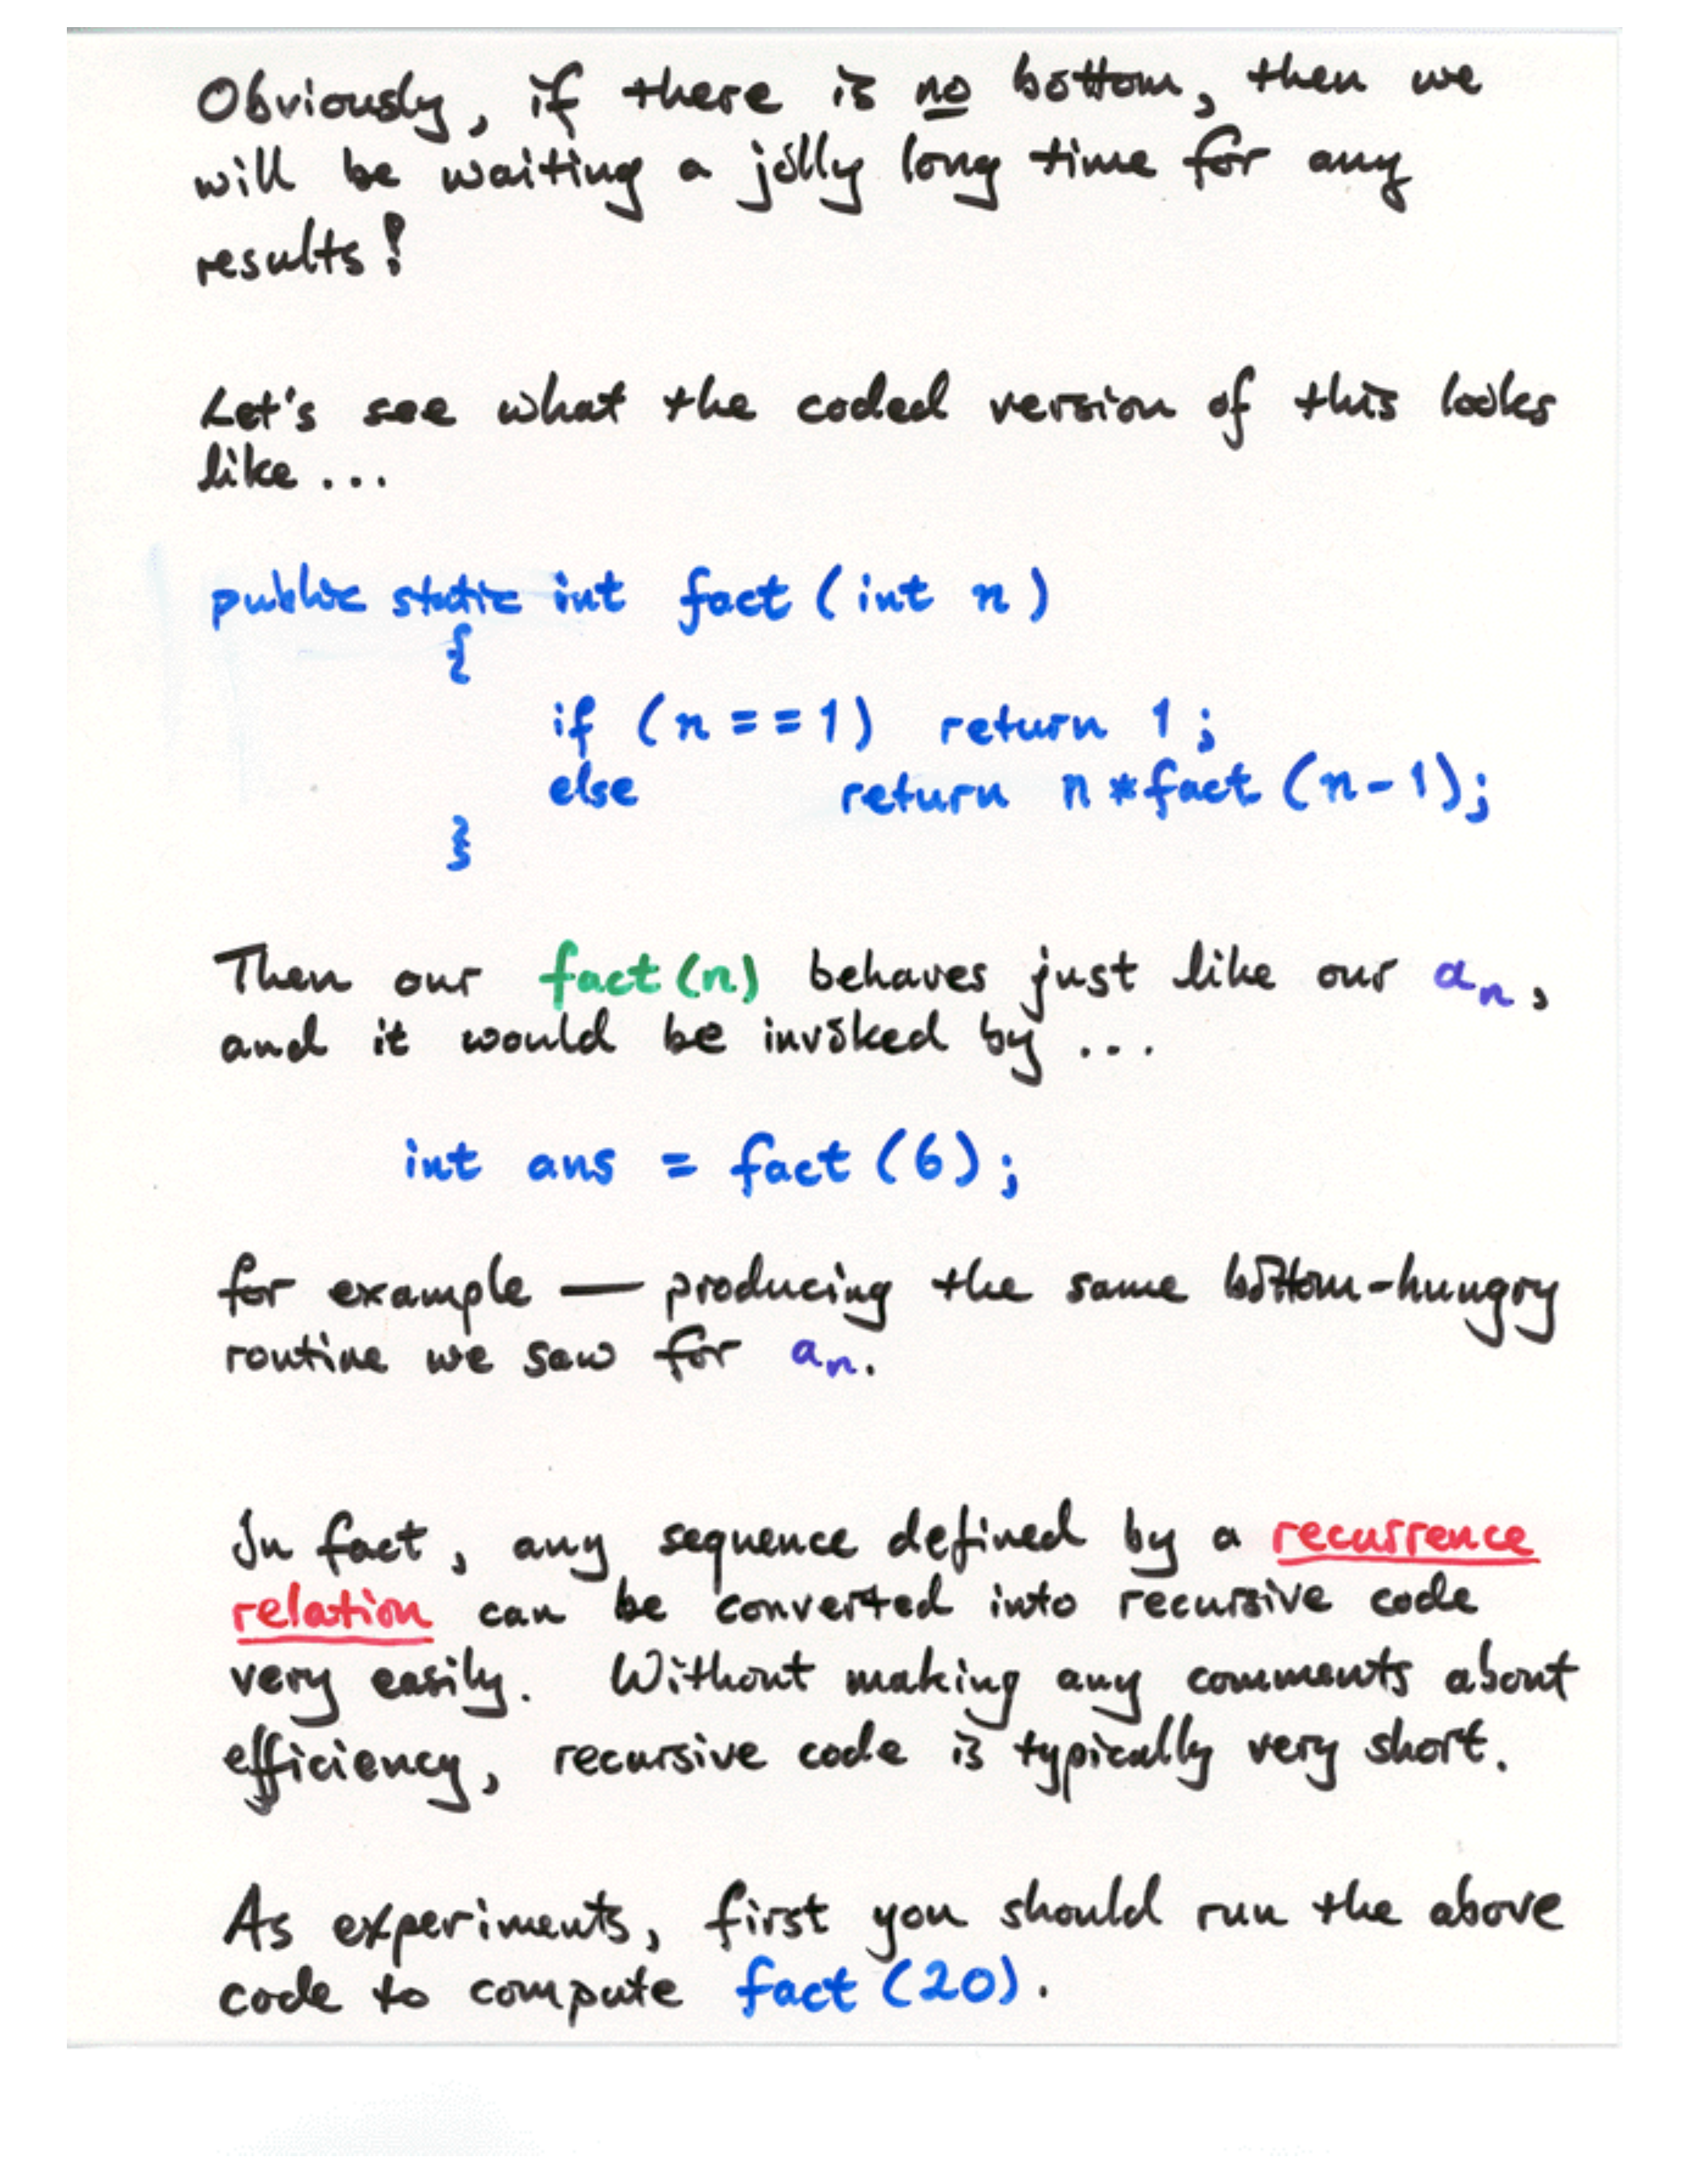 Obviously, if there is no bottom, then we
will be waiting a jolly long time for any
results!
Let's see what the coded version of this looks
like ...
public static int fact (int n)
{
if (n == 1) return 1 ;
else return n * fact (n-1);
}
Then our fact (n) behaves just like our an,
and it would be invoked by ...
int ans = fact (6);
for example — producing the same bottom-hungry
routine we saw for an.
In fact, any sequence defined by a recurrence
relation can be converted into recursive code
very easily. Without making any comments about
efficiency, recursive code is typically very short.
As experiments, first you should run the above
code to compute fact (20).